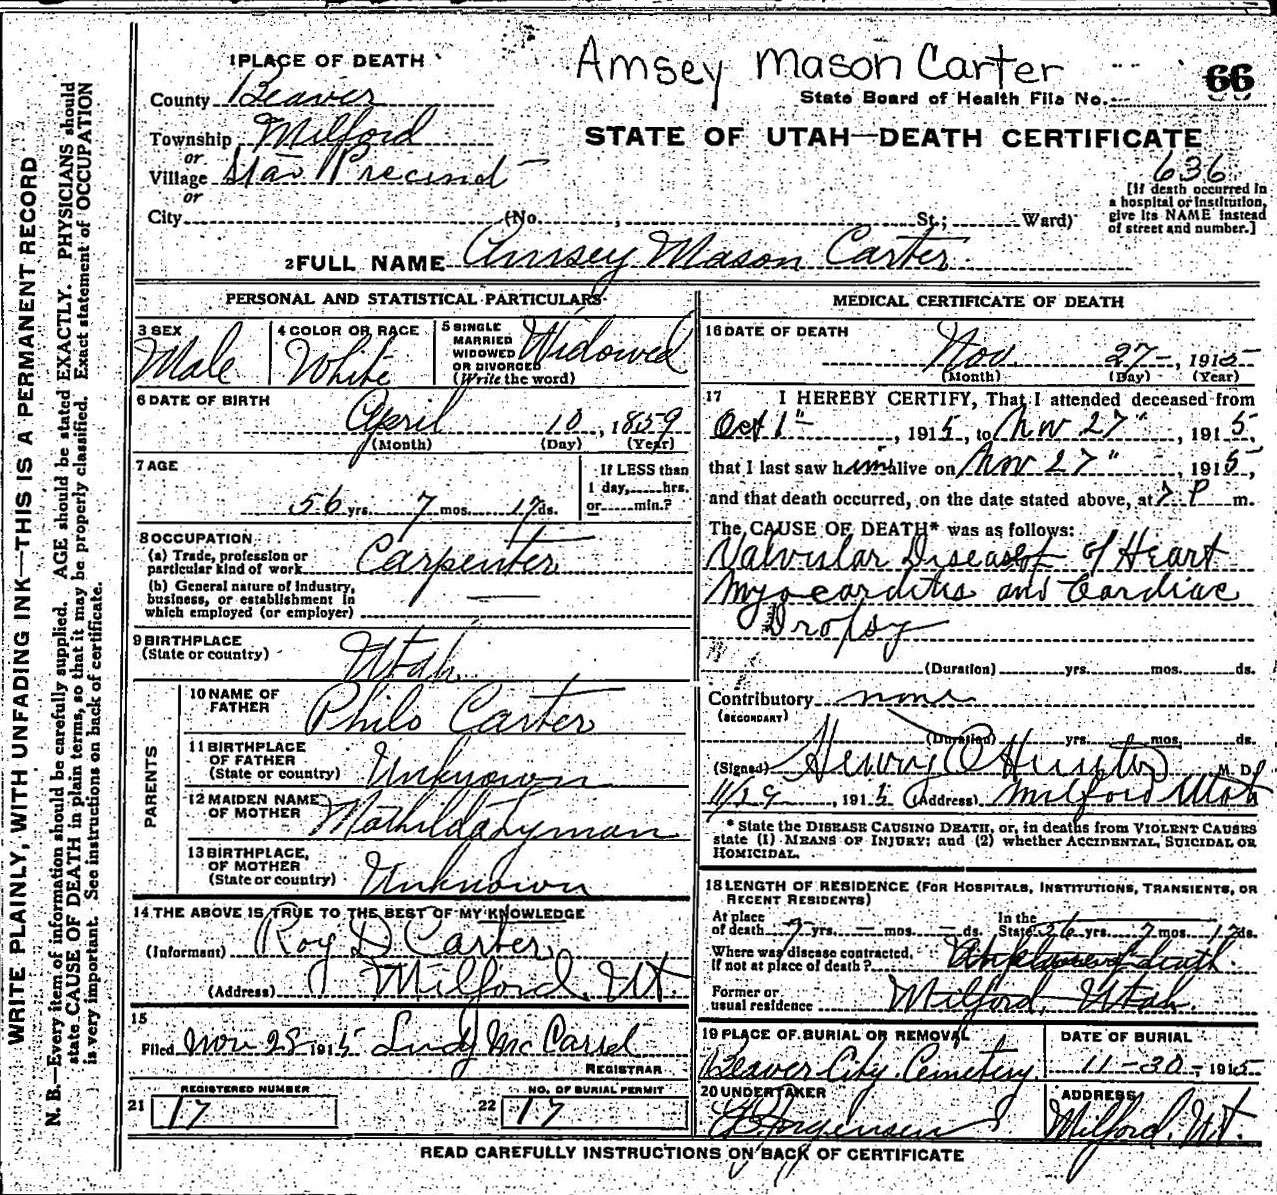 WRITE PLAINLY, WITH UNFADING INK—THIS IS A PERMANENT RECORD
N. B.—Every item of information should be carefully supplied. AGE should be stated EXACTLY. PHYSICIANS should
state CAUSE OF DEATH in plain terms, so that it may be properly classified. Exact statement of OCCUPATION
is very important. See instructions on back of certificate.
Amsey Mason Carter
66
State Board of Health File No.
STATE OF UTAH—DEATH CERTIFICATE
636
[If death occurred in
a hospital or institution,
give its NAME instead
of street and number.]
1 PLACE OF DEATH
County Beaver
Township Milford
or
Village Star Precinct
or
City (No. , St.; Ward)
2 FULL NAME Amsey Mason Carter
PERSONAL AND STATISTICAL PARTICULARS
3 SEX
Male
4 COLOR OR RACE
White
5 SINGLE
MARRIED
WIDOWED
OR DIVORCED
(Write the word)
Widowed
6 DATE OF BIRTH
April 10, 1859
(Month) (Day) (Year)
7 AGE
56 yrs. 7 mos. 17 ds.
If LESS than
1 day, hrs.
or min.?
8 OCCUPATION
(a) Trade, profession or
particular kind of work Carpenter
(b) General nature of industry,
business, or establishment in
which employed (or employer) —
9 BIRTHPLACE
(State or country)
Utah
PARENTS
10 NAME OF
FATHER
Philo Carter
11 BIRTHPLACE
OF FATHER
(State or country)
Unknown
12 MAIDEN NAME
OF MOTHER
Mathilda Lyman
13 BIRTHPLACE,
OF MOTHER
(State or country)
Unknown
14 THE ABOVE IS TRUE TO THE BEST OF MY KNOWLEDGE
(Informant) Roy D Carter
(Address) Milford, Ut.
15
Filed Nov 28 1915 McCarrel
REGISTRAR
REGISTERED NUMBER
21 17
NO. OF BURIAL PERMIT
22 17
MEDICAL CERTIFICATE OF DEATH
16 DATE OF DEATH
Nov. 27–, 1915
(Month) (Day) (Year)
17 I HEREBY CERTIFY, That I attended deceased from
Oct 1st, 1915, to Nov 27", 1915,
that I last saw him alive on Nov 27", 1915,
and that death occurred, on the date stated above, at 7 P m.
The CAUSE OF DEATH* was as follows:
Valvular Disease of Heart
Myocarditis and Cardiac
Dropsy
(Duration) yrs. mos. ds.
Contributory none
(SECONDARY)
(Duration) yrs. mos. ds.
(Signed) Henry M. D.
11/29, 1915 (Address) Milford Utah
* State the DISEASE CAUSING DEATH, or, in deaths from VIOLENT CAUSES
state (1) MEANS OF INJURY; and (2) whether ACCIDENTAL, SUICIDAL OR
HOMICIDAL.
18 LENGTH OF RESIDENCE (FOR HOSPITALS, INSTITUTIONS, TRANSIENTS, OR
RECENT RESIDENTS)
At place
of death 7 yrs. — mos. — ds.
In the
State 56 yrs. 7 mos. 17 ds.
Where was disease contracted,
if not at place of death? At place of death.
Former or
usual residence Milford, Utah.
19 PLACE OF BURIAL OR REMOVAL
Beaver City Cemetery
DATE OF BURIAL
11–30– 1915
20 UNDERTAKER
Jorgensen
ADDRESS
Milford, Ut.
READ CAREFULLY INSTRUCTIONS ON BACK OF CERTIFICATE